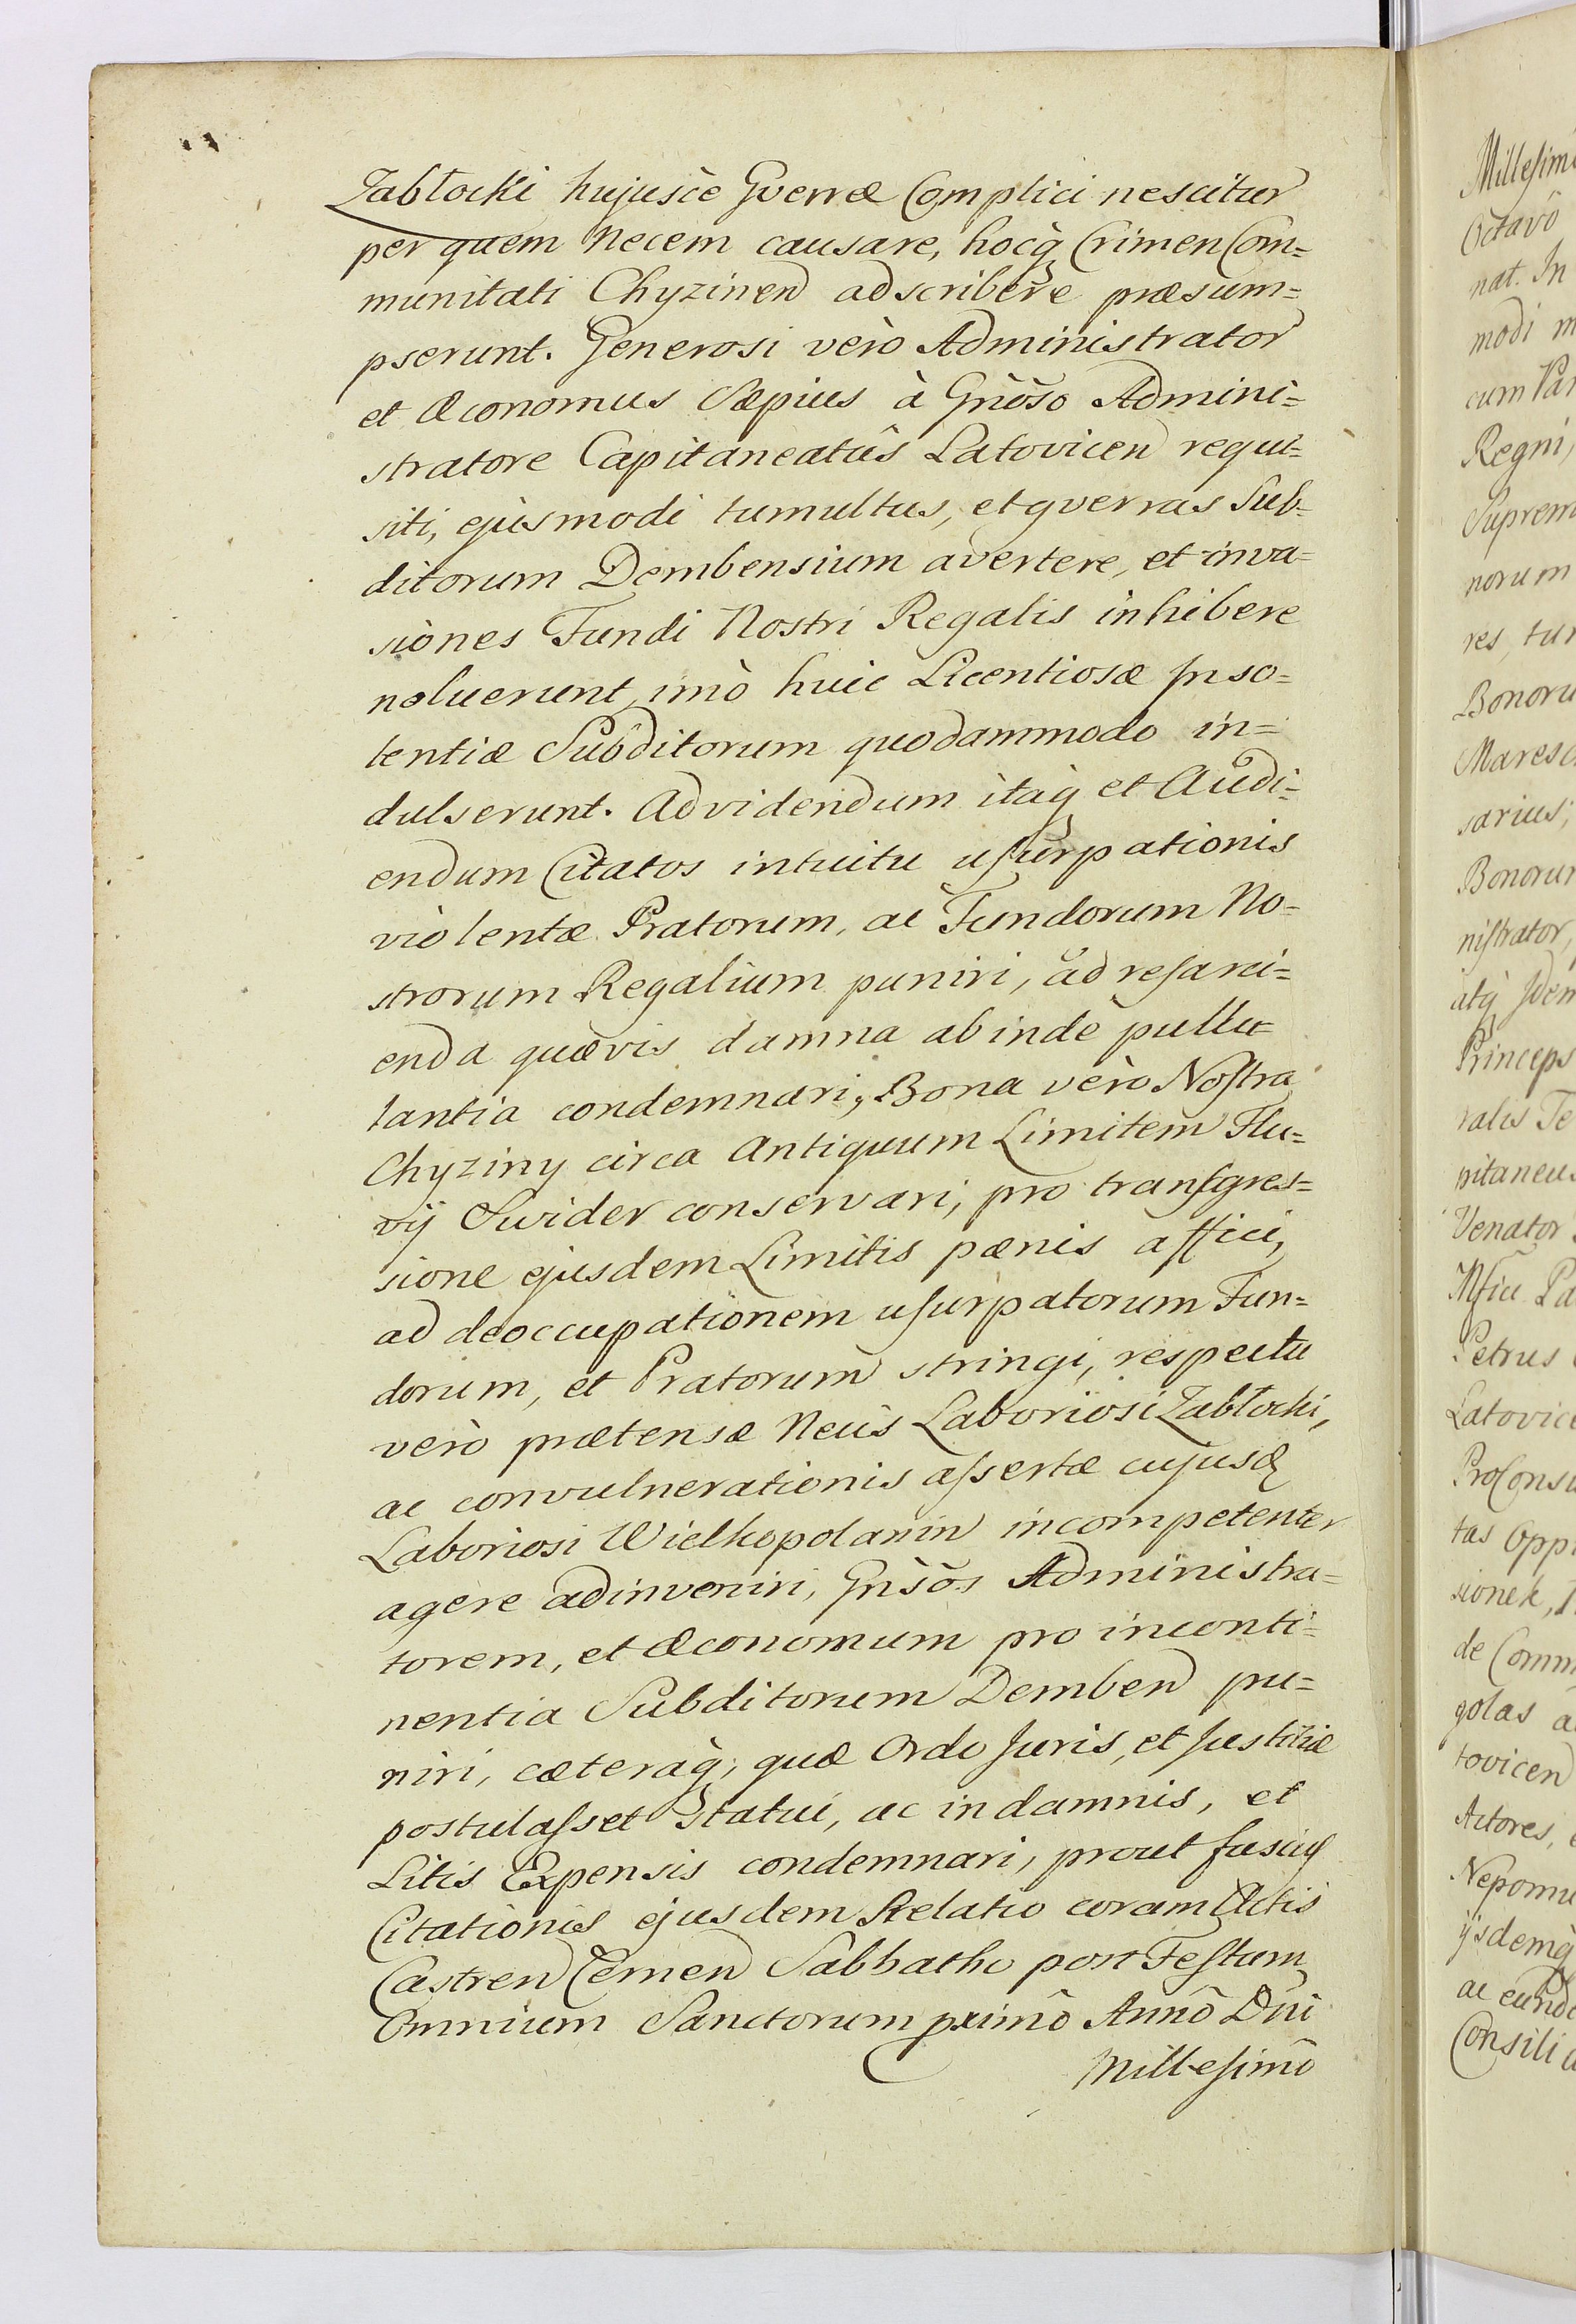 Zabłocki hujusce Gverræ Complici nescitur
per quem Necem causare, hocq̀ Crimen Com=
munitati Chyzinen adscribere præsum=
pserunt. Generosi verò Administrator
et Œconomus Sæpius à Gnõso Admini=
stratore Capitaneatûs Latovicen requi=
siti, ejusmodi tumultus, et gverras Sub=
ditorum Dembensium avertere, et inva=
siones Fundi Nostri Regalis inhibere
noluerunt, imò huic Licentiosæ Inso=
lentiæ Subditorum quodammodo in=
dulserunt. Ad videndum itaq̀ et Audi=
endum Citatos intuitu uſurpationis
violentæ Pratorum, ac Fundorum No=
strorum Regalium puniri, ad reſarci=
enda quævis damna ab inde pullu=
lantia condemnari, Bona verò Noſtra
Chyziny circa Antiquum Limitem Flu=
vij Swider conservari, pro tranſgres=
sione ejusdem Limitis pœnis affici,
ad deoccupationem uſurpatorum Fun=
dorum, et Pratorum stringi, respectu
verò prætensæ Necis Laboriosi Zabłocki,
ac convulnerationis aſsertæ cujusd
Laboriosi Wielkopolanin incompetenter
agere adinveniri, Gnsõs Administra=
torem, et Œconomum pro inconti=
nentia Subditorum Demben pu=
niri, cæteraq̀, quæ Ordo Juris, et Justitiæ
postulaſset statui, ac in damnis, et
Litis Expensis condemnari, prout fusiuſ
Citationis ejusdem Relatio coram Actis
Castren Cernen Sabbatho post Feſtum
Omnium Sanctorum pximô Annô Dni
Milleſimô
Milleſim
Octavô
nat. In
modi m
cum Par
Regni,
Suprem
norum
res, tu
Bonoru
Maresc
sarius;
Bonorum
niſtrator,
atq̀ Idem
Princeps
ralis Te
pitaneus
Venator
Petrus
Latovice
ProConsu
tas Oppi
sionek,
de Comm
golas a
tovicen
Actores,
Nepomu
ijsdemq̀
ac eund
Consilia